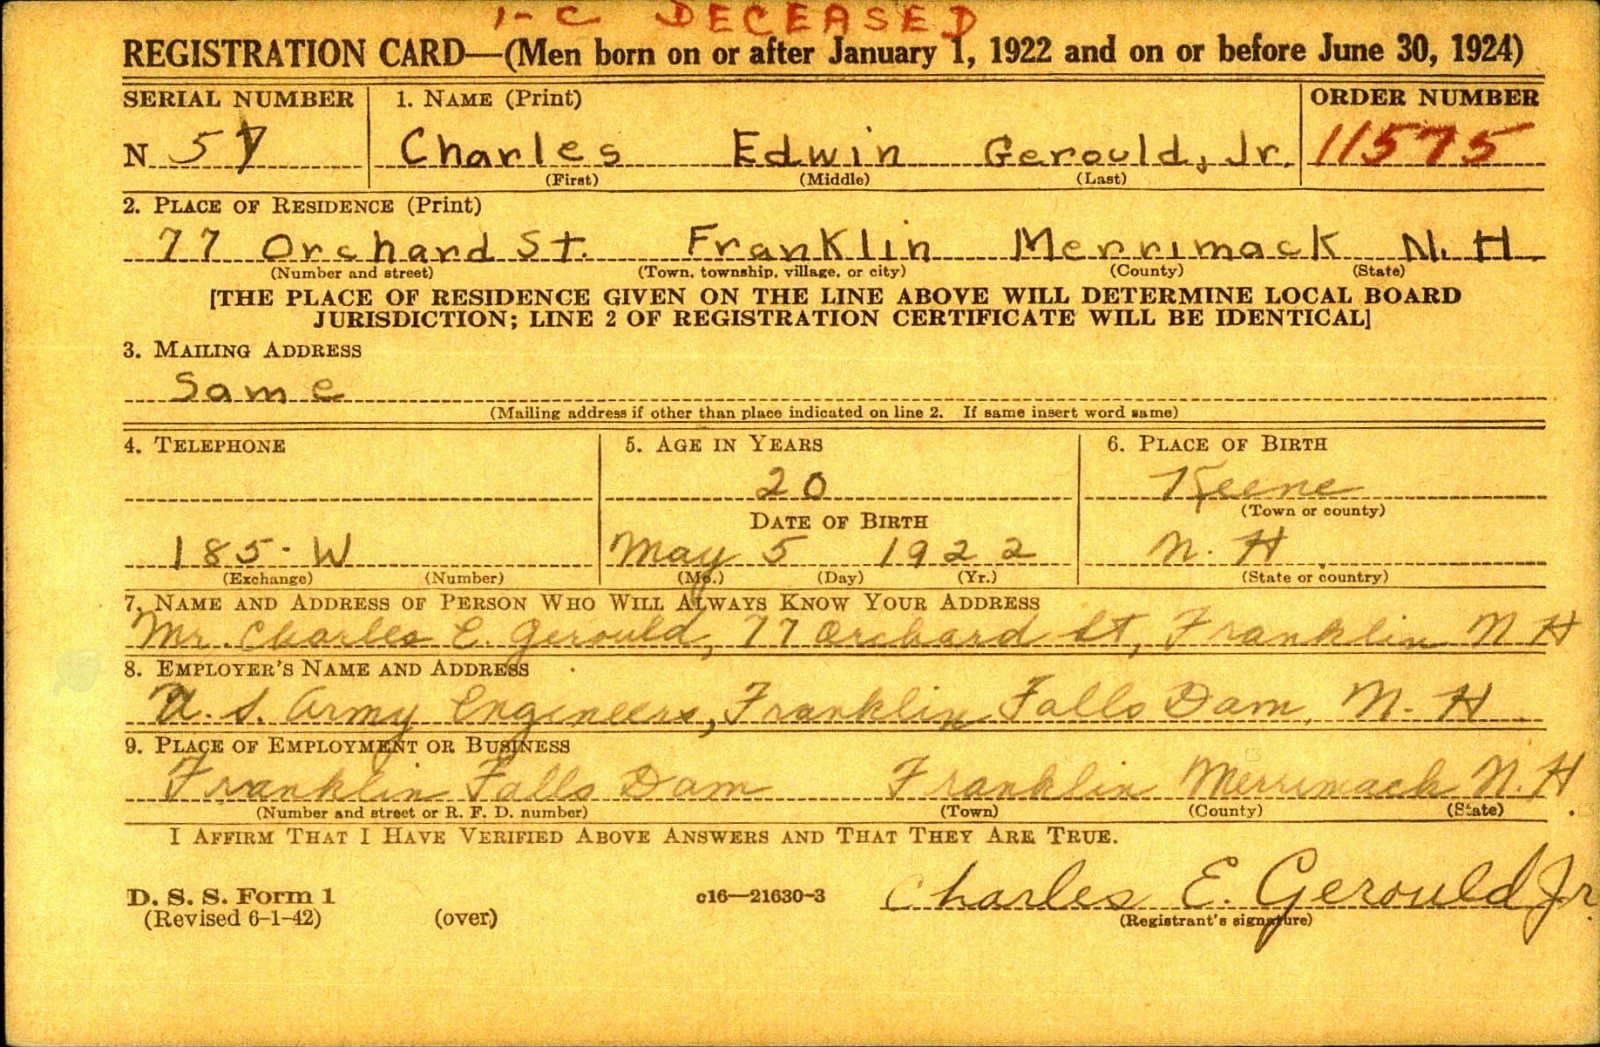 1-C DECEASED
REGISTRATION CARD—(Men born on or after January 1, 1922 and on or before June 30, 1924)
SERIAL NUMBER 1. NAME (Print) ORDER NUMBER
N 57 Charles Edwin Gerould, Jr. 11575
(First) (Middle) (Last)
2. PLACE OF RESIDENCE (Print)
77 Orchard St. Franklin Merrimack N. H.
(Number and street) (Town, township, village, or city) (County) (State)
[THE PLACE OF RESIDENCE GIVEN ON THE LINE ABOVE WILL DETERMINE LOCAL BOARD
JURISDICTION; LINE 2 OF REGISTRATION CERTIFICATE WILL BE IDENTICAL]
3. MAILING ADDRESS
Same
(Mailing address if other than place indicated on line 2. If same insert word same)
4. TELEPHONE 5. AGE IN YEARS 6. PLACE OF BIRTH
20 Keene
DATE OF BIRTH (Town or county)
185-W May 5 1922 N. H.
(Exchange) (Number) (Mo.) (Day) (Yr.) (State or country)
7. NAME AND ADDRESS OF PERSON WHO WILL ALWAYS KNOW YOUR ADDRESS
Mr. Charles E. Gerould, 77 Orchard St, Franklin N H
8. EMPLOYER'S NAME AND ADDRESS
U. S. Army Engineers, Franklin Falls Dam, N. H.
9. PLACE OF EMPLOYMENT OR BUSINESS
Franklin Falls Dam Franklin Merrimack N. H.
(Number and street or R. F. D. number) (Town) (County) (State)
I AFFIRM THAT I HAVE VERIFIED ABOVE ANSWERS AND THAT THEY ARE TRUE.
D. S. S. Form 1 c16—21630-3 Charles E. Gerould Jr.
(Revised 6-1-42) (over) (Registrant's signature)